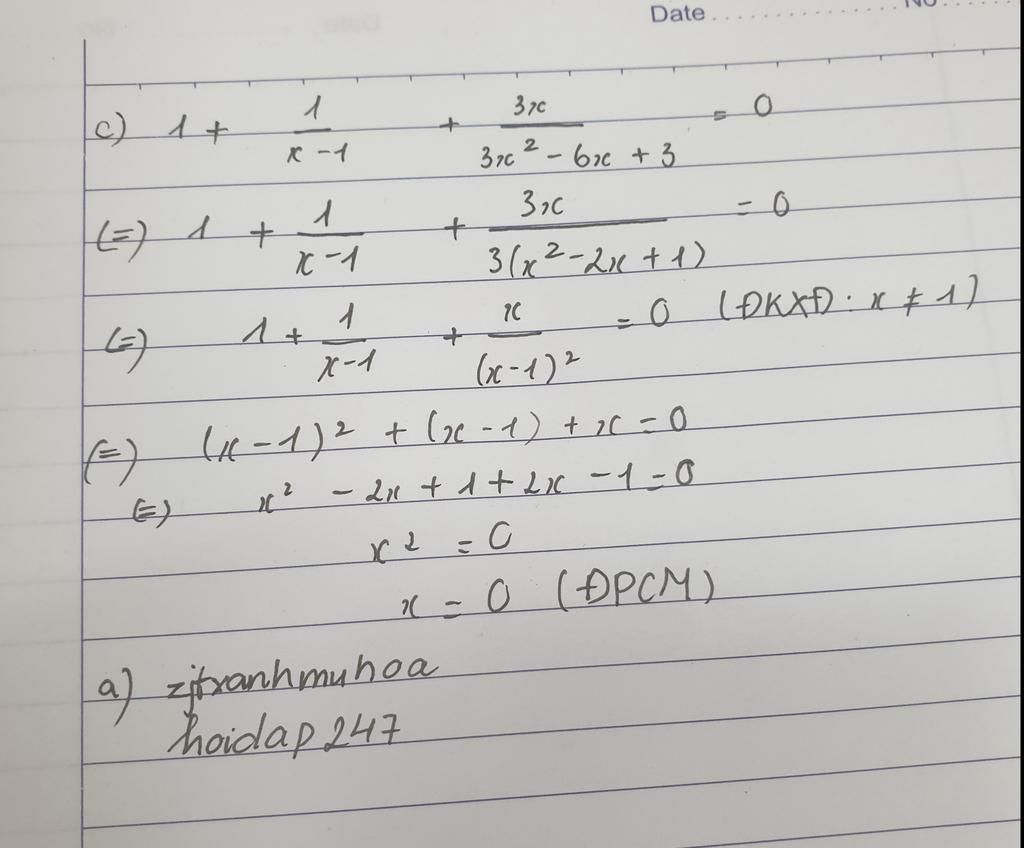 Date ............... No ......
c) 1 + 1/(x-1) + 3x/(3x² - 6x + 3) = 0
(=) 1 + 1/(x-1) + 3x/(3(x² - 2x + 1)) = 0
(=) 1 + 1/(x-1) + x/(x-1)² = 0 (ĐKXĐ: x ≠ 1)
(=) (x-1)² + (x-1) + x = 0
(=) x² - 2x + 1 + 2x - 1 = 0
x² = 0
x = 0 (ĐPCM)
a) zjtxanhmuhoa
hoidap247